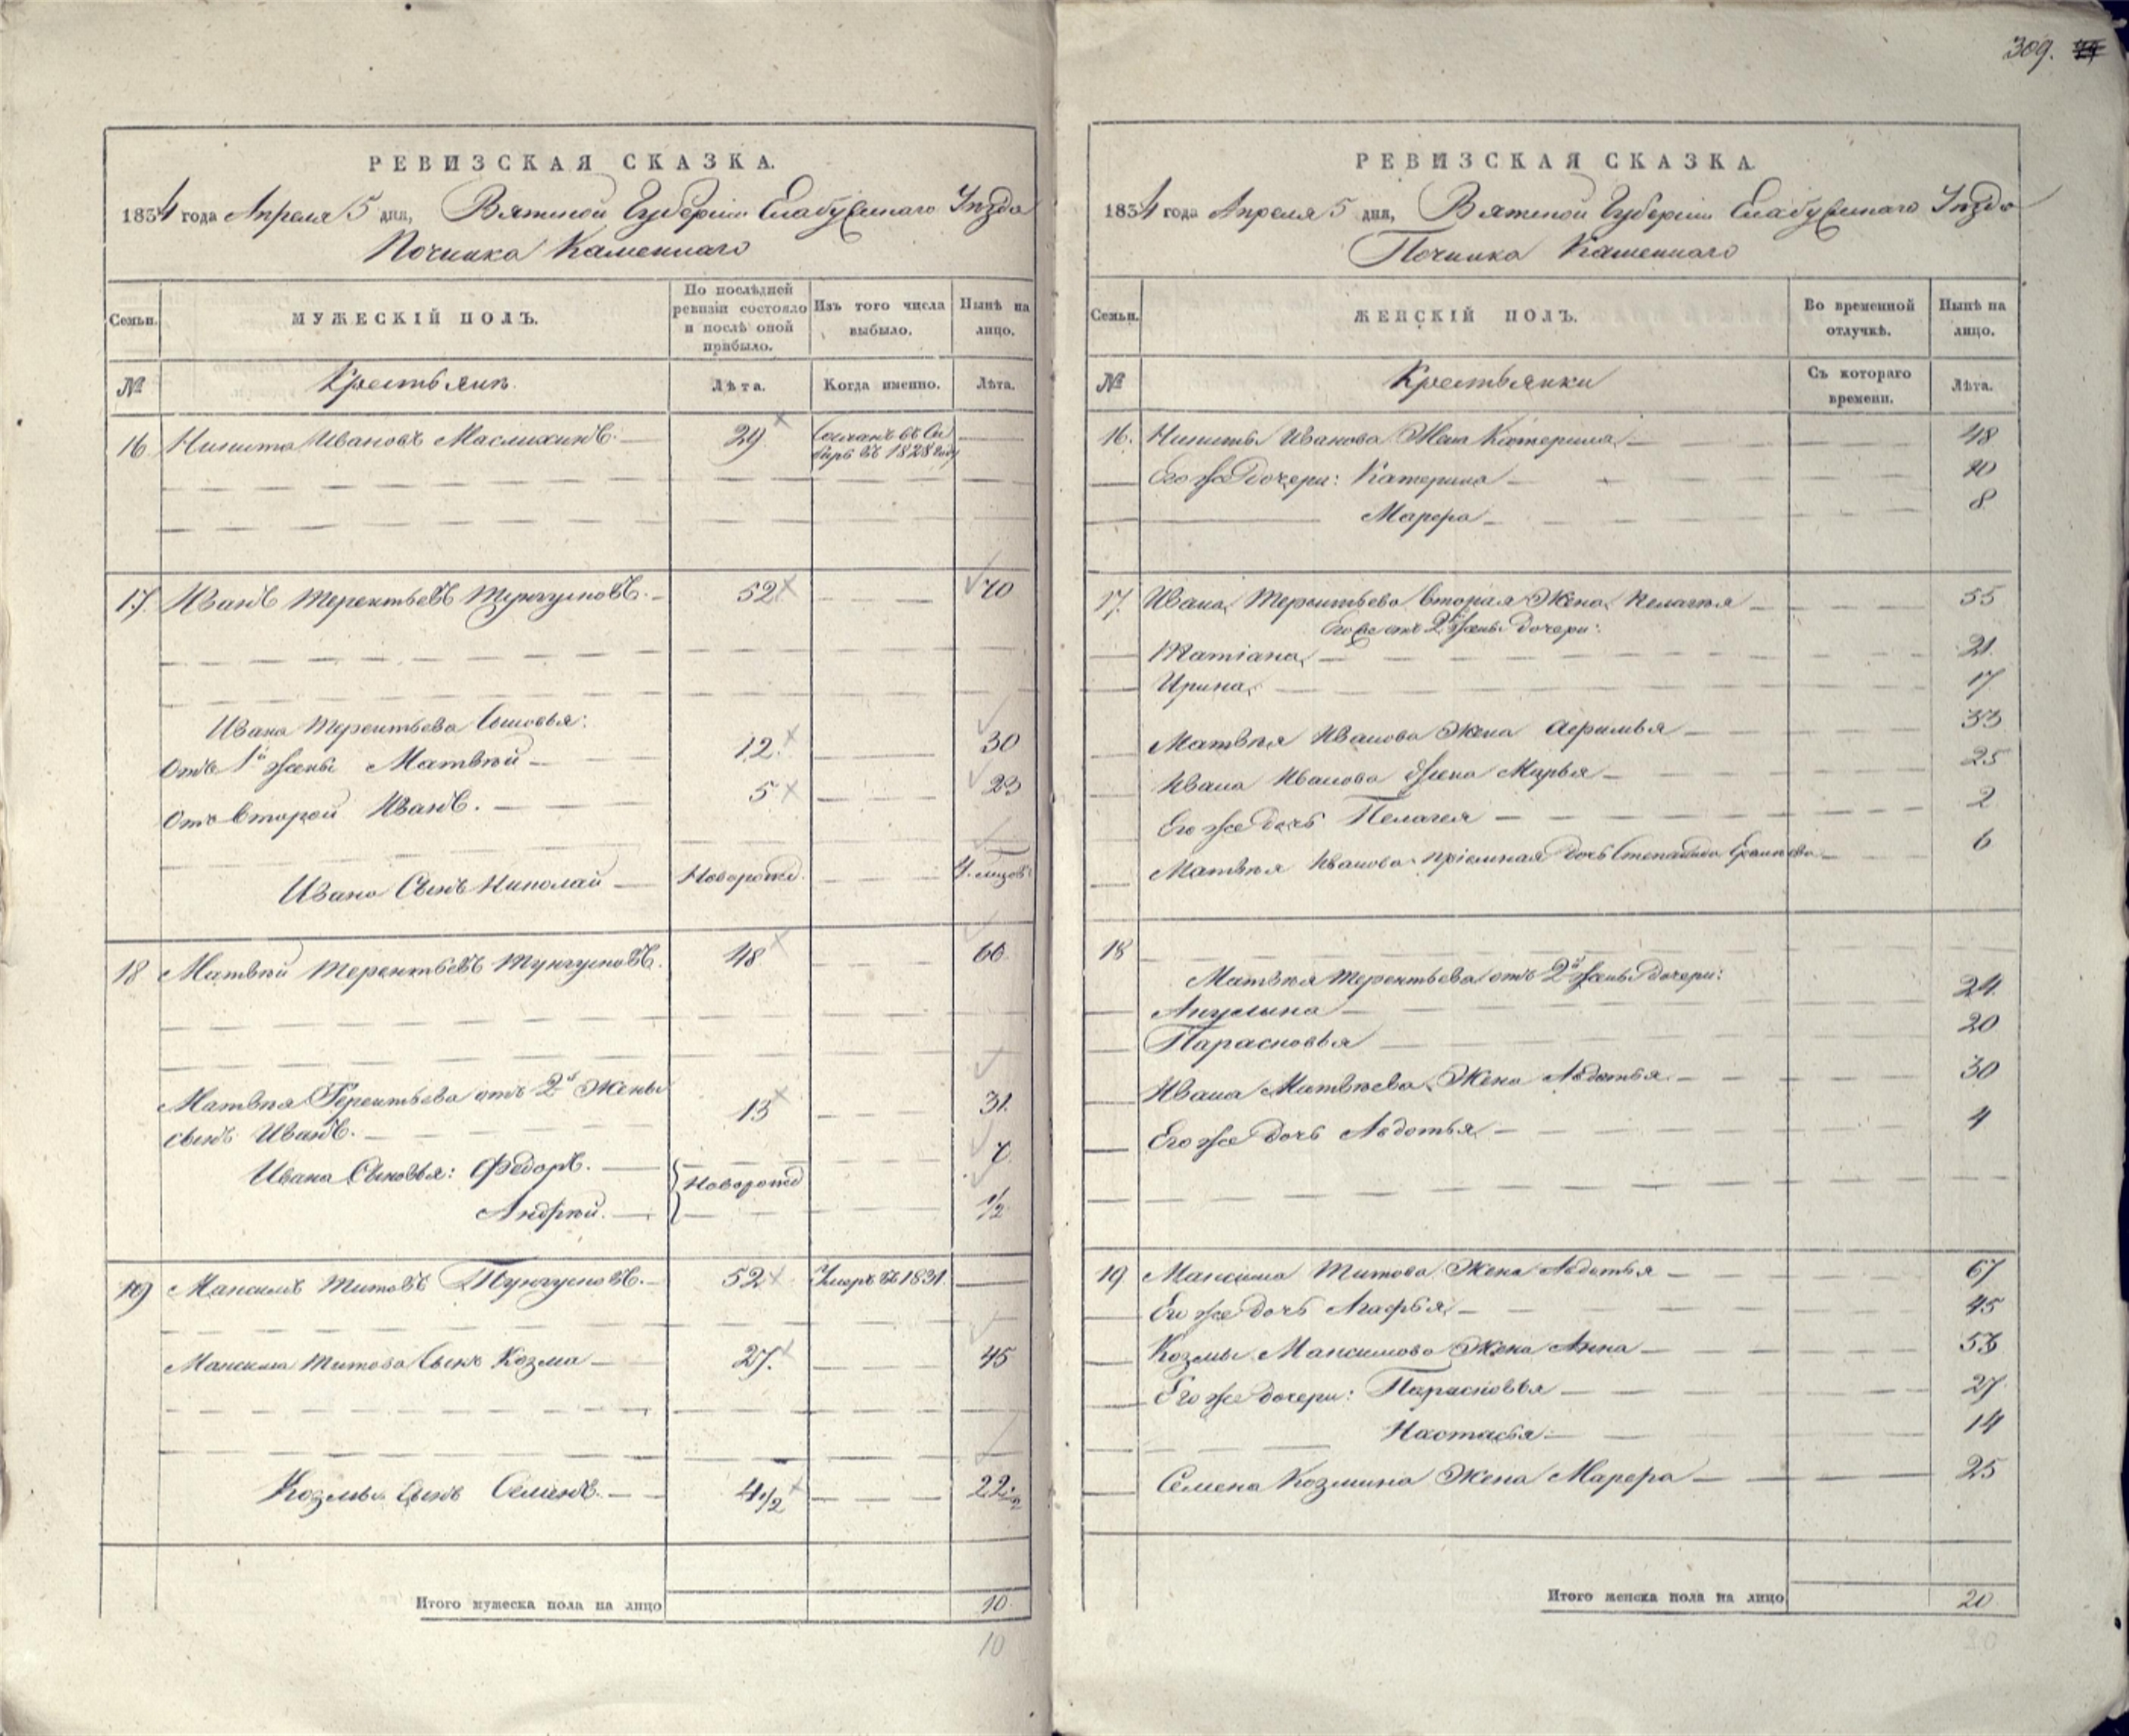 309. 49
РЕВИЗСКАЯ СКАЗКА.
1834 года Апреля 5 дня, Вятской Губерніи Елабужскаго Уѣзда
Починка Каменнаго
Семьи.
МУЖЕСКІЙ ПОЛЪ.
По послѣдней ревизіи состояло и послѣ оной прибыло.
Изъ того числа выбыло.
Нынѣ на лицо.
№
Крестьянъ
Лѣта.
Когда именно.
Лѣта.
16 Никита Ивановъ Маслихинъ. 29 Сосланъ въ Си
бирь въ 1828 году
17. Иванъ Терентьевъ Тунгусковъ. 52 70
Ивана Терентьева Сыновья:
Отъ 1й жены Матвѣй 12. 30
Отъ второй Иванъ. 5 23
Ивана Сынъ Николай Новорожд. 4. мѣсяц.
18 Матвѣй Терентьевъ Тунгусковъ. 48 66.
Матвѣя Терентьева отъ 2й Жены
сынъ Иванъ. 13 31.
Ивана Сыновья: Федоръ. Новорожд 7.
Андрѣй. 1/2
19 Максимъ Титовъ Тунгусковъ. 52 Умеръ въ 1831.
Максима Титова Сынъ Козма 27. 45
Козмы Сынъ Семенъ. 4 1/2 22 1/2
Итого мужеска пола на лицо 10.
10
РЕВИЗСКАЯ СКАЗКА
1834 года Апреля 5 дня, Вятской Губерніи Елабужскаго Уѣзда
Починка Каменнаго
Семьи.
ЖЕНСКІЙ ПОЛЪ.
Во временной отлучкѣ.
Нынѣ на лицо.
№
Крестьянки
Съ котораго времени.
Лѣта.
16. Никиты Иванова Жена Катерина 48
Его же дочери: Катерина 10
Марфа 8
17. Ивана Терентьева вторая Жена Пелагѣя 55
Его же отъ 2й жены дочери:
Татіана 21.
Ирина 17
Матвѣя Иванова Жена Афимья 33
Ивана Иванова Жена Марья 25
Его же дочь Пелагея 2
Матвѣя Иванова пріемная дочь Степанида 6
18
Матвѣя Терентьева отъ 2й жены дочери:
Акулина 24.
Парасковья 20
Ивана Матвѣева Жена Авдотья 30
Его же дочь Авдотья 4
19 Максима Титова Жена Авдотья 67
Его же дочь Агафья 45
Козмы Максимова Жена Анна 53
Его же дочери: Парасковья 27
Настасья 14
Семена Козмина Жена Марфа 25
Итого женска пола на лицо 20
20